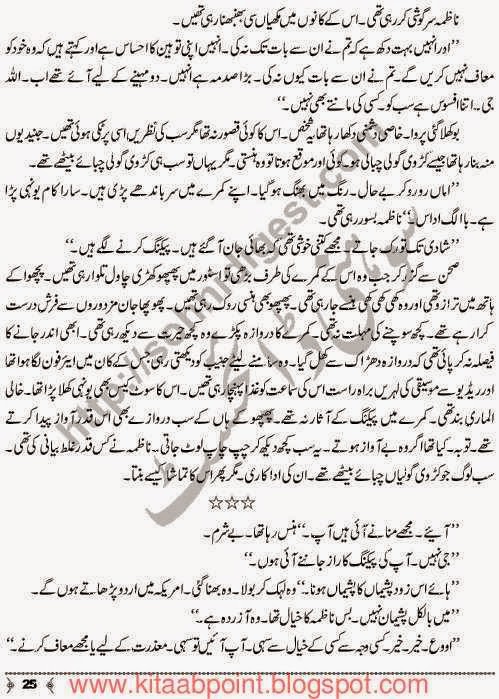 ناظمہ سرگوشی کر رہی تھی۔ اس کے کانوں میں مکھیاں سی بھنبھنا رہی تھیں۔
”اور انہیں بہت دکھ ہے کہ تم نے ان سے بات تک نہ کی۔ انہیں اپنی توہین کا احساس ہے اور کہتے ہیں کہ وہ خود کو
معاف نہیں کریں گے۔ تم نے ان سے بات کیوں نہ کی۔ بڑا صدمہ ہے انہیں۔ دو مہینے کے لیے آئے تھے اب۔ اللہ
جی۔ اتنا افسوس ہے سب کو کسی کی مانتے بھی نہیں۔“
بوکھلا گئی پروا۔ خاصی دشمنی دکھا رہا تھا یہ شخص۔ اس کا کوئی قصور نہ تھا مگر سب کی نظریں اسی پر ٹکی ہوئی تھیں۔ جنید یوں
منہ بنا رہا تھا جیسے کڑوی گولی چبا لی ہو۔ کوئی اور موقع ہوتا تو وہ ہنستی۔ مگر یہاں تو سب ہی کڑوی گولی چبائے بیٹھے تھے۔
”اماں رو رو کر بے حال۔ رنگ میں بھنگ ہو گیا۔ اپنے کمرے میں سر باندھے پڑی ہیں۔ سارا کام یونہی پڑا
ہے۔ بابا الگ اداس۔“ ناظمہ بسور رہی تھی۔
”شادی تک تو رک جاتے۔ مجھے کتنی خوشی تھی کہ بھائی جان آ گئے ہیں۔ پیکنگ کرنے لگے ہیں۔“
صحن سے گزر کر جب وہ اس کے کمرے کی طرف بڑھی تو اسٹور میں پھپھو کھڑی چاول تلوا رہی تھیں۔ پچھوا کے
ہاتھ میں ترازو تھی اور وہ کھی کھی کھی ہنسے جا رہی تھی۔ پھپھو بھی ہنسی روک رہی تھیں۔ پھوپھا جان مزدوروں سے فرش درست
کرا رہے تھے۔ کچھ سوچنے کی مہلت نہ تھی۔ کمرے کا دروازہ پکڑے وہ کچھ حیرت سے دیکھ رہی تھی۔ ابھی اندر جانے کا
فیصلہ نہ کر پائی تھی کہ دروازہ دھڑاک سے کھل گیا۔ وہ سامنے لیٹے جیب کو دیکھتی رہی جس کے کان میں ایئرفون لگا ہوا تھا
اور ریڈیو سے موسیقی کی لہریں براہ راست اس کی سماعت کو غذا پہنچا رہی تھیں۔ اس کا سوٹ کیس بھی یونہی کھلا پڑا تھا۔ خالی
الماری بند تھی۔ کمرے میں پیکنگ کے آثار نہ تھے۔ پھپھو کے ہاں کے سب دروازے بھی اس قدر آواز پیدا کرتے
تھے۔ توبہ۔ کیا تھا اگر وہ بے آواز ہوتے۔ یہ سب کچھ دیکھ کر چپ چاپ لوٹ جاتی۔ ناظمہ نے کس قدر غلط بیانی کی تھی۔
سب لوگ جو کڑوی گولیاں چبائے بیٹھے تھے۔ ان کی اداکاری۔ مگر پھر اس کا تماشا کیسے بنتا۔
☆☆☆
”آیئے۔ مجھے منانے آئی ہیں آپ۔“ ہنس رہا تھا۔ بے شرم۔
”جی نہیں۔ آپ کی پیکنگ کا راز جاننے آئی ہوں۔“
”ہائے اس زود پشیماں کا پشیماں ہونا۔“ وہ لہک کر بولا۔ وہ بھنا گئی۔ امریکہ میں اردو پڑھاتے ہوں گے۔
”میں بالکل پشیمان نہیں۔ بس ناظمہ کا خیال تھا۔ وہ آزردہ ہے۔“
”اووع۔ خیر۔ خیر۔ کسی وجہ سے کسی کے خیال سے سہی۔ آپ آئیں تو سہی۔ معذرت کے لیے یا مجھے معاف کرنے۔“
25
www.kitaabpoint.blogspot.com